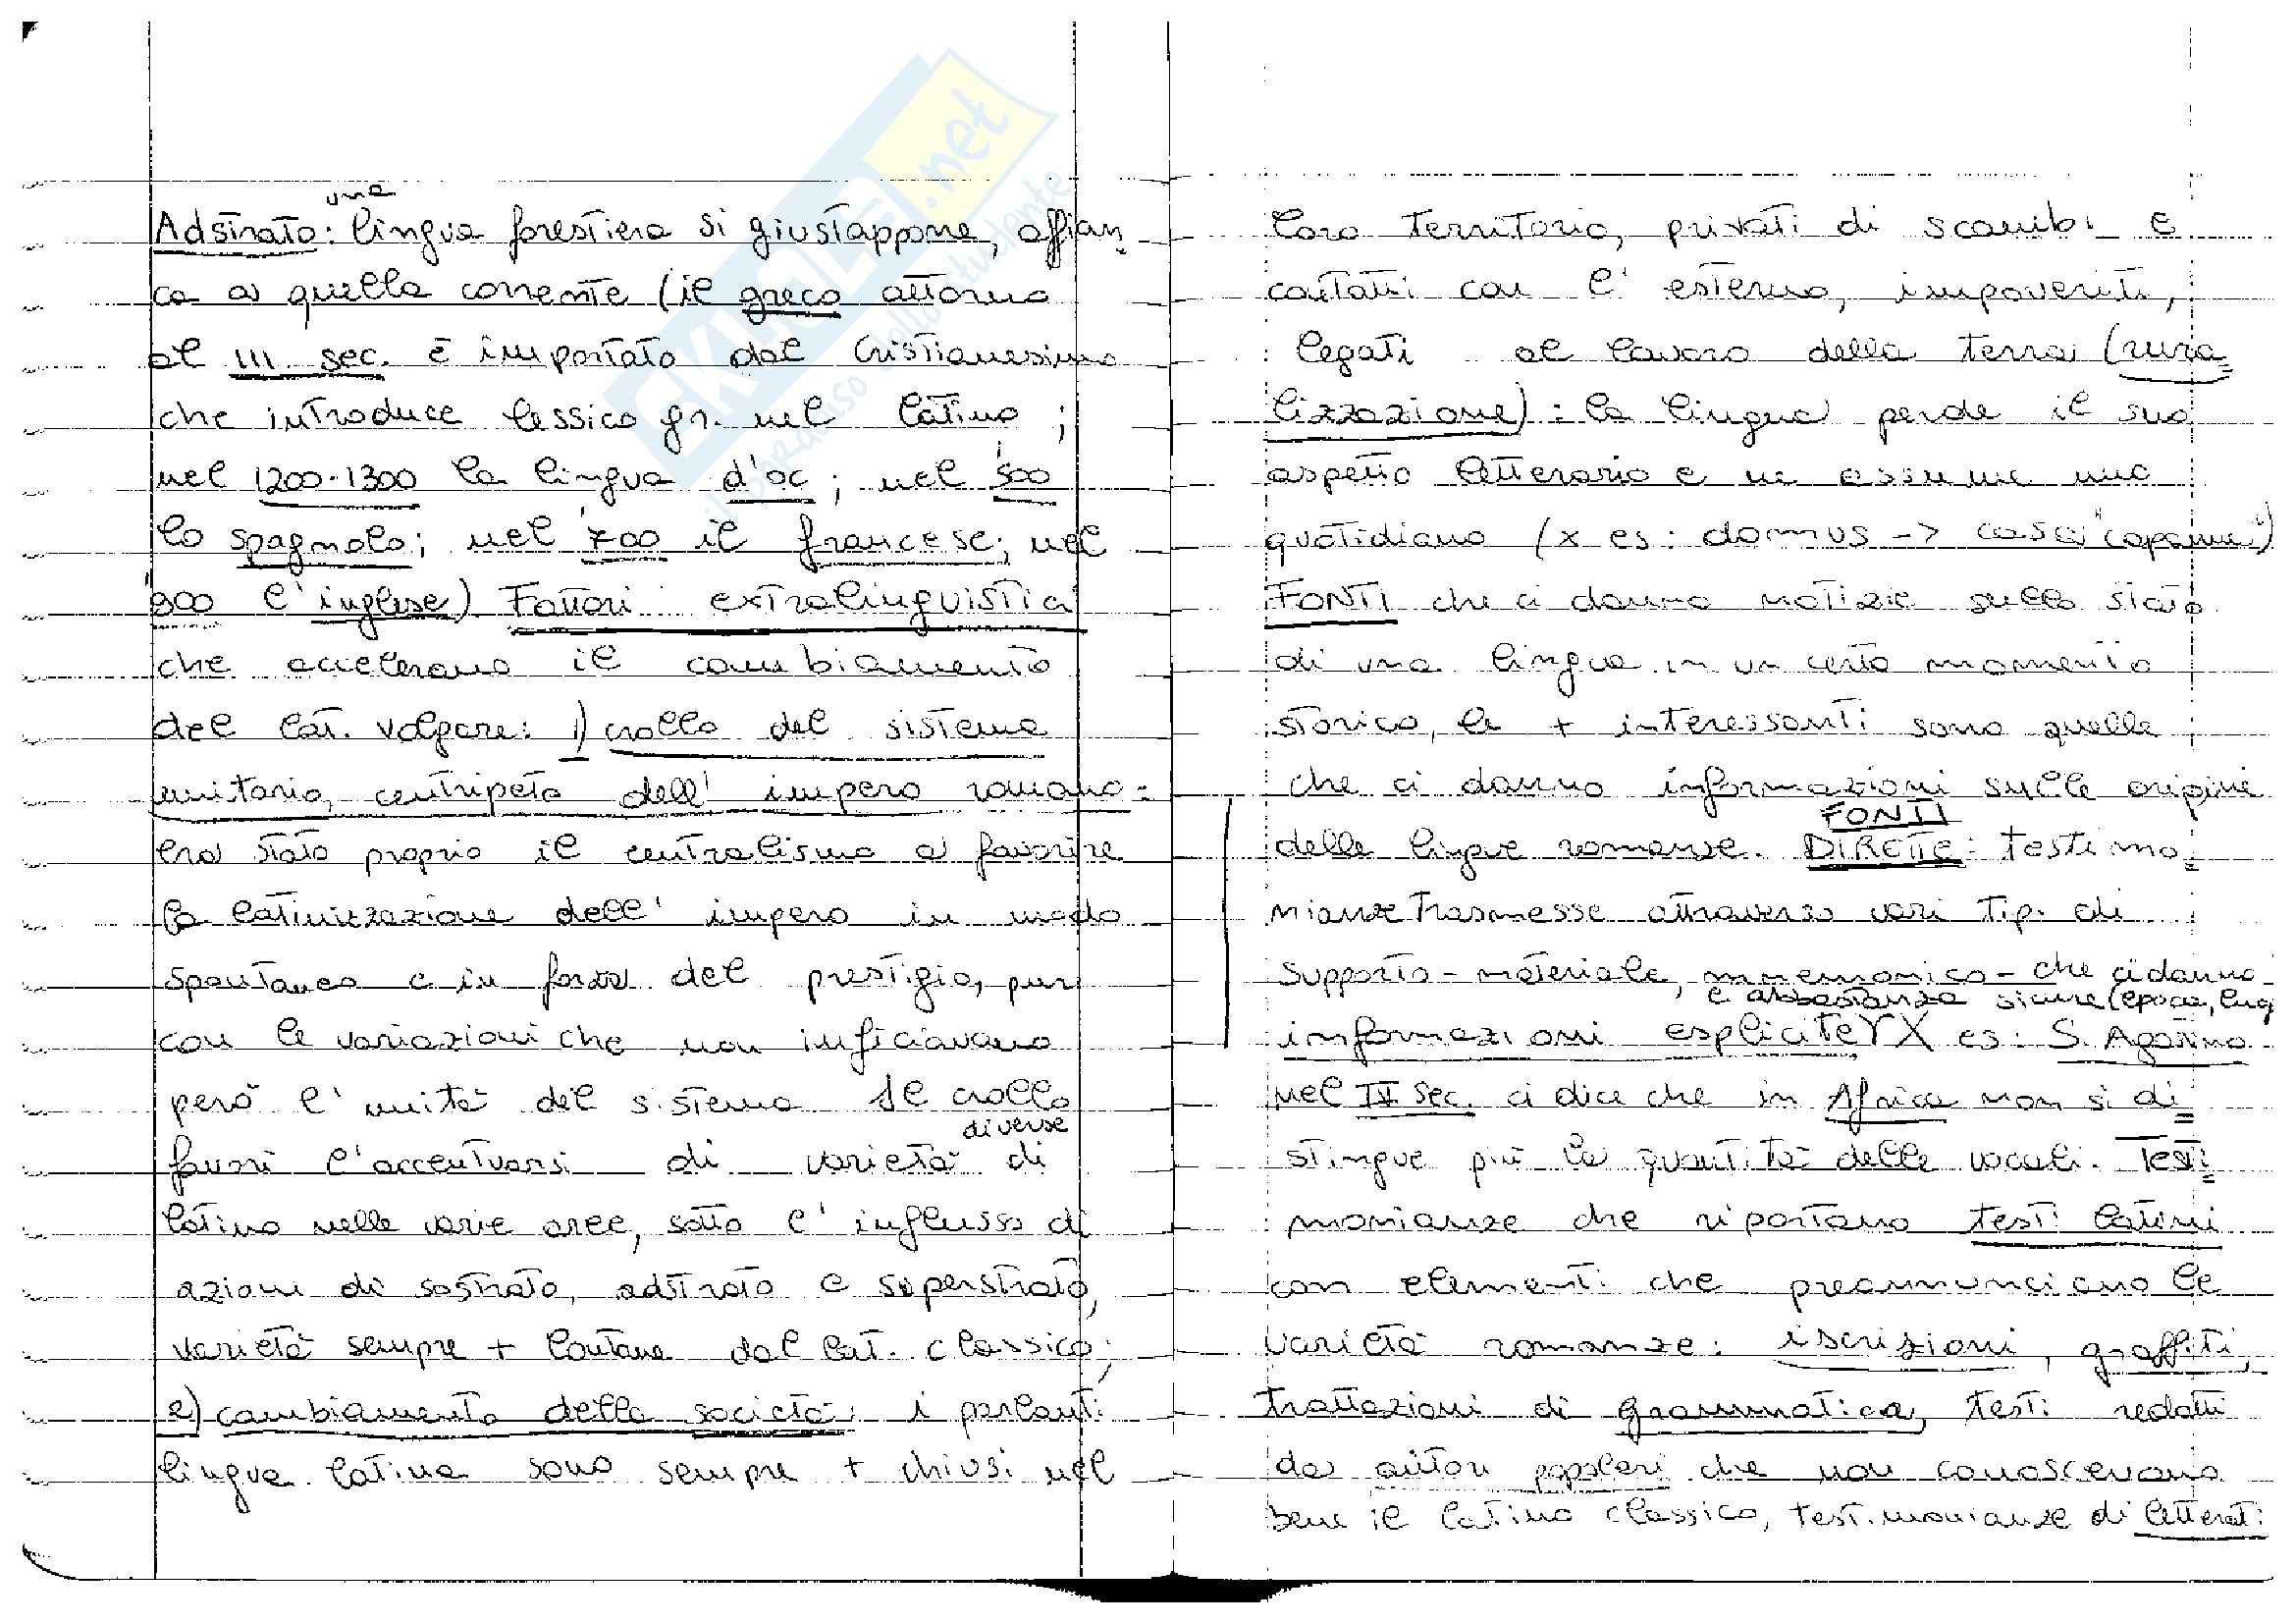 una
Adstrato: lingua forestiera si giustappone, affian
ca a quella corrente (il greco attorno
al III sec. è importato dal Cristianesimo
che introduce lessico gr. nel latino ;
nel 1200-1300 la lingua d'oc ; nel '500
lo spagnolo; nel '700 il francese; nel
'900 l'inglese) Fattori extralinguistici
che accelerano il cambiamento
del lat. volgare: 1) crollo del sistema
unitario, centripeto dell'impero romano:
era stato proprio il centralismo a favorire
la latinizzazione dell'impero in modo
spontaneo e in forza del prestigio, pur
con le variazioni che non inficiavano
però l'unità del sistema Il crollo
diverse
favorì l'accentuarsi di varietà di
latino nelle varie aree, sotto l'influsso di
azioni di sostrato, adstrato e superstrato,
varietà sempre + lontane dal lat. classico;
2) cambiamento della società: i parlanti
lingua latina sono sempre + chiusi nel
loro territorio, privati di scambi e
contatti con l'esterno, impoveriti,
legati al lavoro della terra (rura
lizzazione): la lingua perde il suo
aspetto letterario e ne assume uno
quotidiano (x es: domus -> casa "capanna")
FONTI che ci danno notizie sullo stato
di una lingua in un certo momento
storico, le + interessanti sono quelle
che ci danno informazioni sulle origini
FONTI
delle lingue romanze. DIRETTE: testimo
nianze trasmesse attraverso vari tipi di
supporto - materiale, mnemonico - che ci danno
e abbastanza sicure (epoca, luog
informazioni esplicite X es: S. Agostino
nel IV sec. ci dice che in Africa non si di
stingue più la quantità delle vocali. Testi
monianze che riportano testi latini
con elementi che preannunciano le
varietà romanze: iscrizioni, graffiti,
trattazioni di grammatica, testi redatti
da autori popolari che non conoscevano
bene il latino classico, testimonianze di letterati
SKUOLA.net
il paradiso dello studente